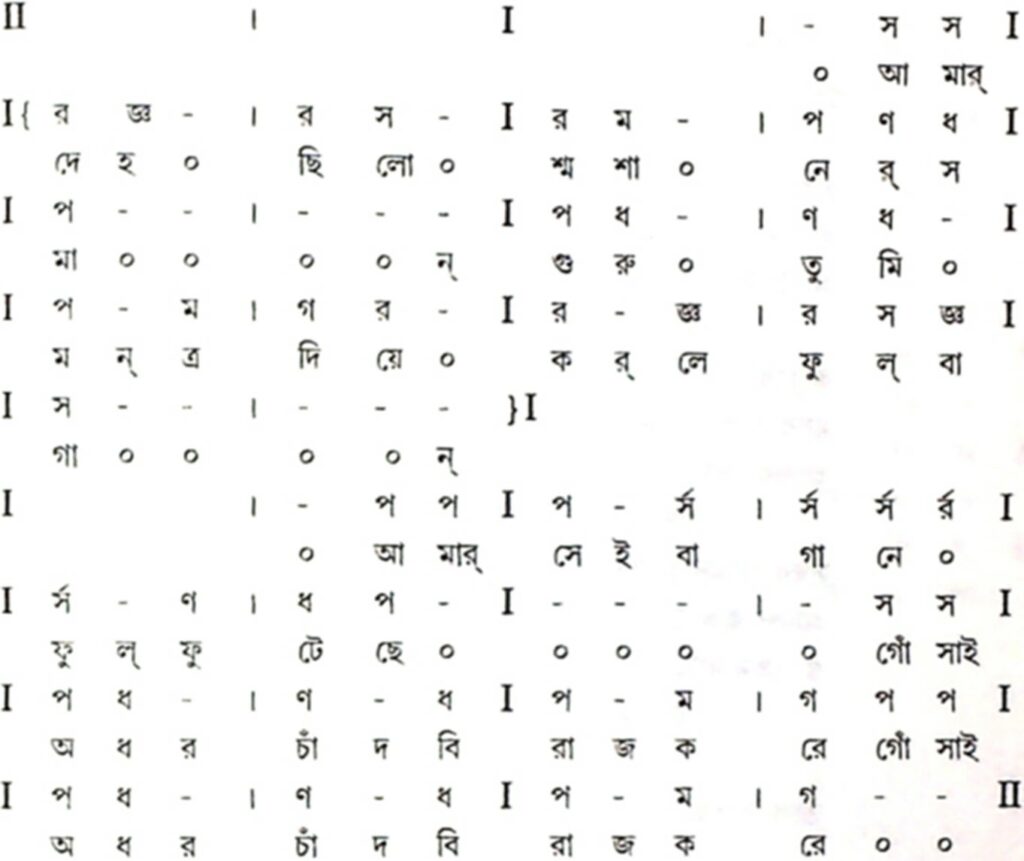 II । I । - স স I
০ আ মার্
I { র জ্ঞ - । র স - I র ম - । প ণ ধ I
দে হ ০ ছি লো ০ শ্ম শা ০ নে র্ স
I প - - । - - - I প ধ - । ণ ধ - I
মা ০ ০ ০ ০ ন্ গু রু ০ তু মি ০
I প - ম । গ র - I র - জ্ঞ । র স জ্ঞ I
ম ন্ ত্র দি য়ে ০ ক র্ লে ফু ল্ বা
I স - - । - - - } I
গা ০ ০ ০ ০ ন্
I । - প প I প - র্স । র্স র্স র্র I
০ আ মার্ সে ই বা গা নে ০
I র্স - ণ । ধ প - I - - - । - স স I
ফু ল্ ফু টে ছে ০ ০ ০ ০ ০ গোঁ সাই
I প ধ - । ণ - ধ I প - ম । গ প প I
অ ধ র চাঁ দ বি রা জ ক রে গোঁ সাই
I প ধ - । ণ - ধ I প - ম । গ - - II
অ ধ র চাঁ দ বি রা জ ক রে ০ ০